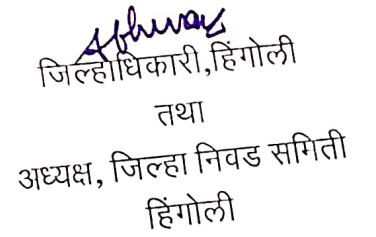 जिल्हाधिकारी,हिंगोली
तथा
अध्यक्ष, जिल्हा निवड समिती
हिंगोली